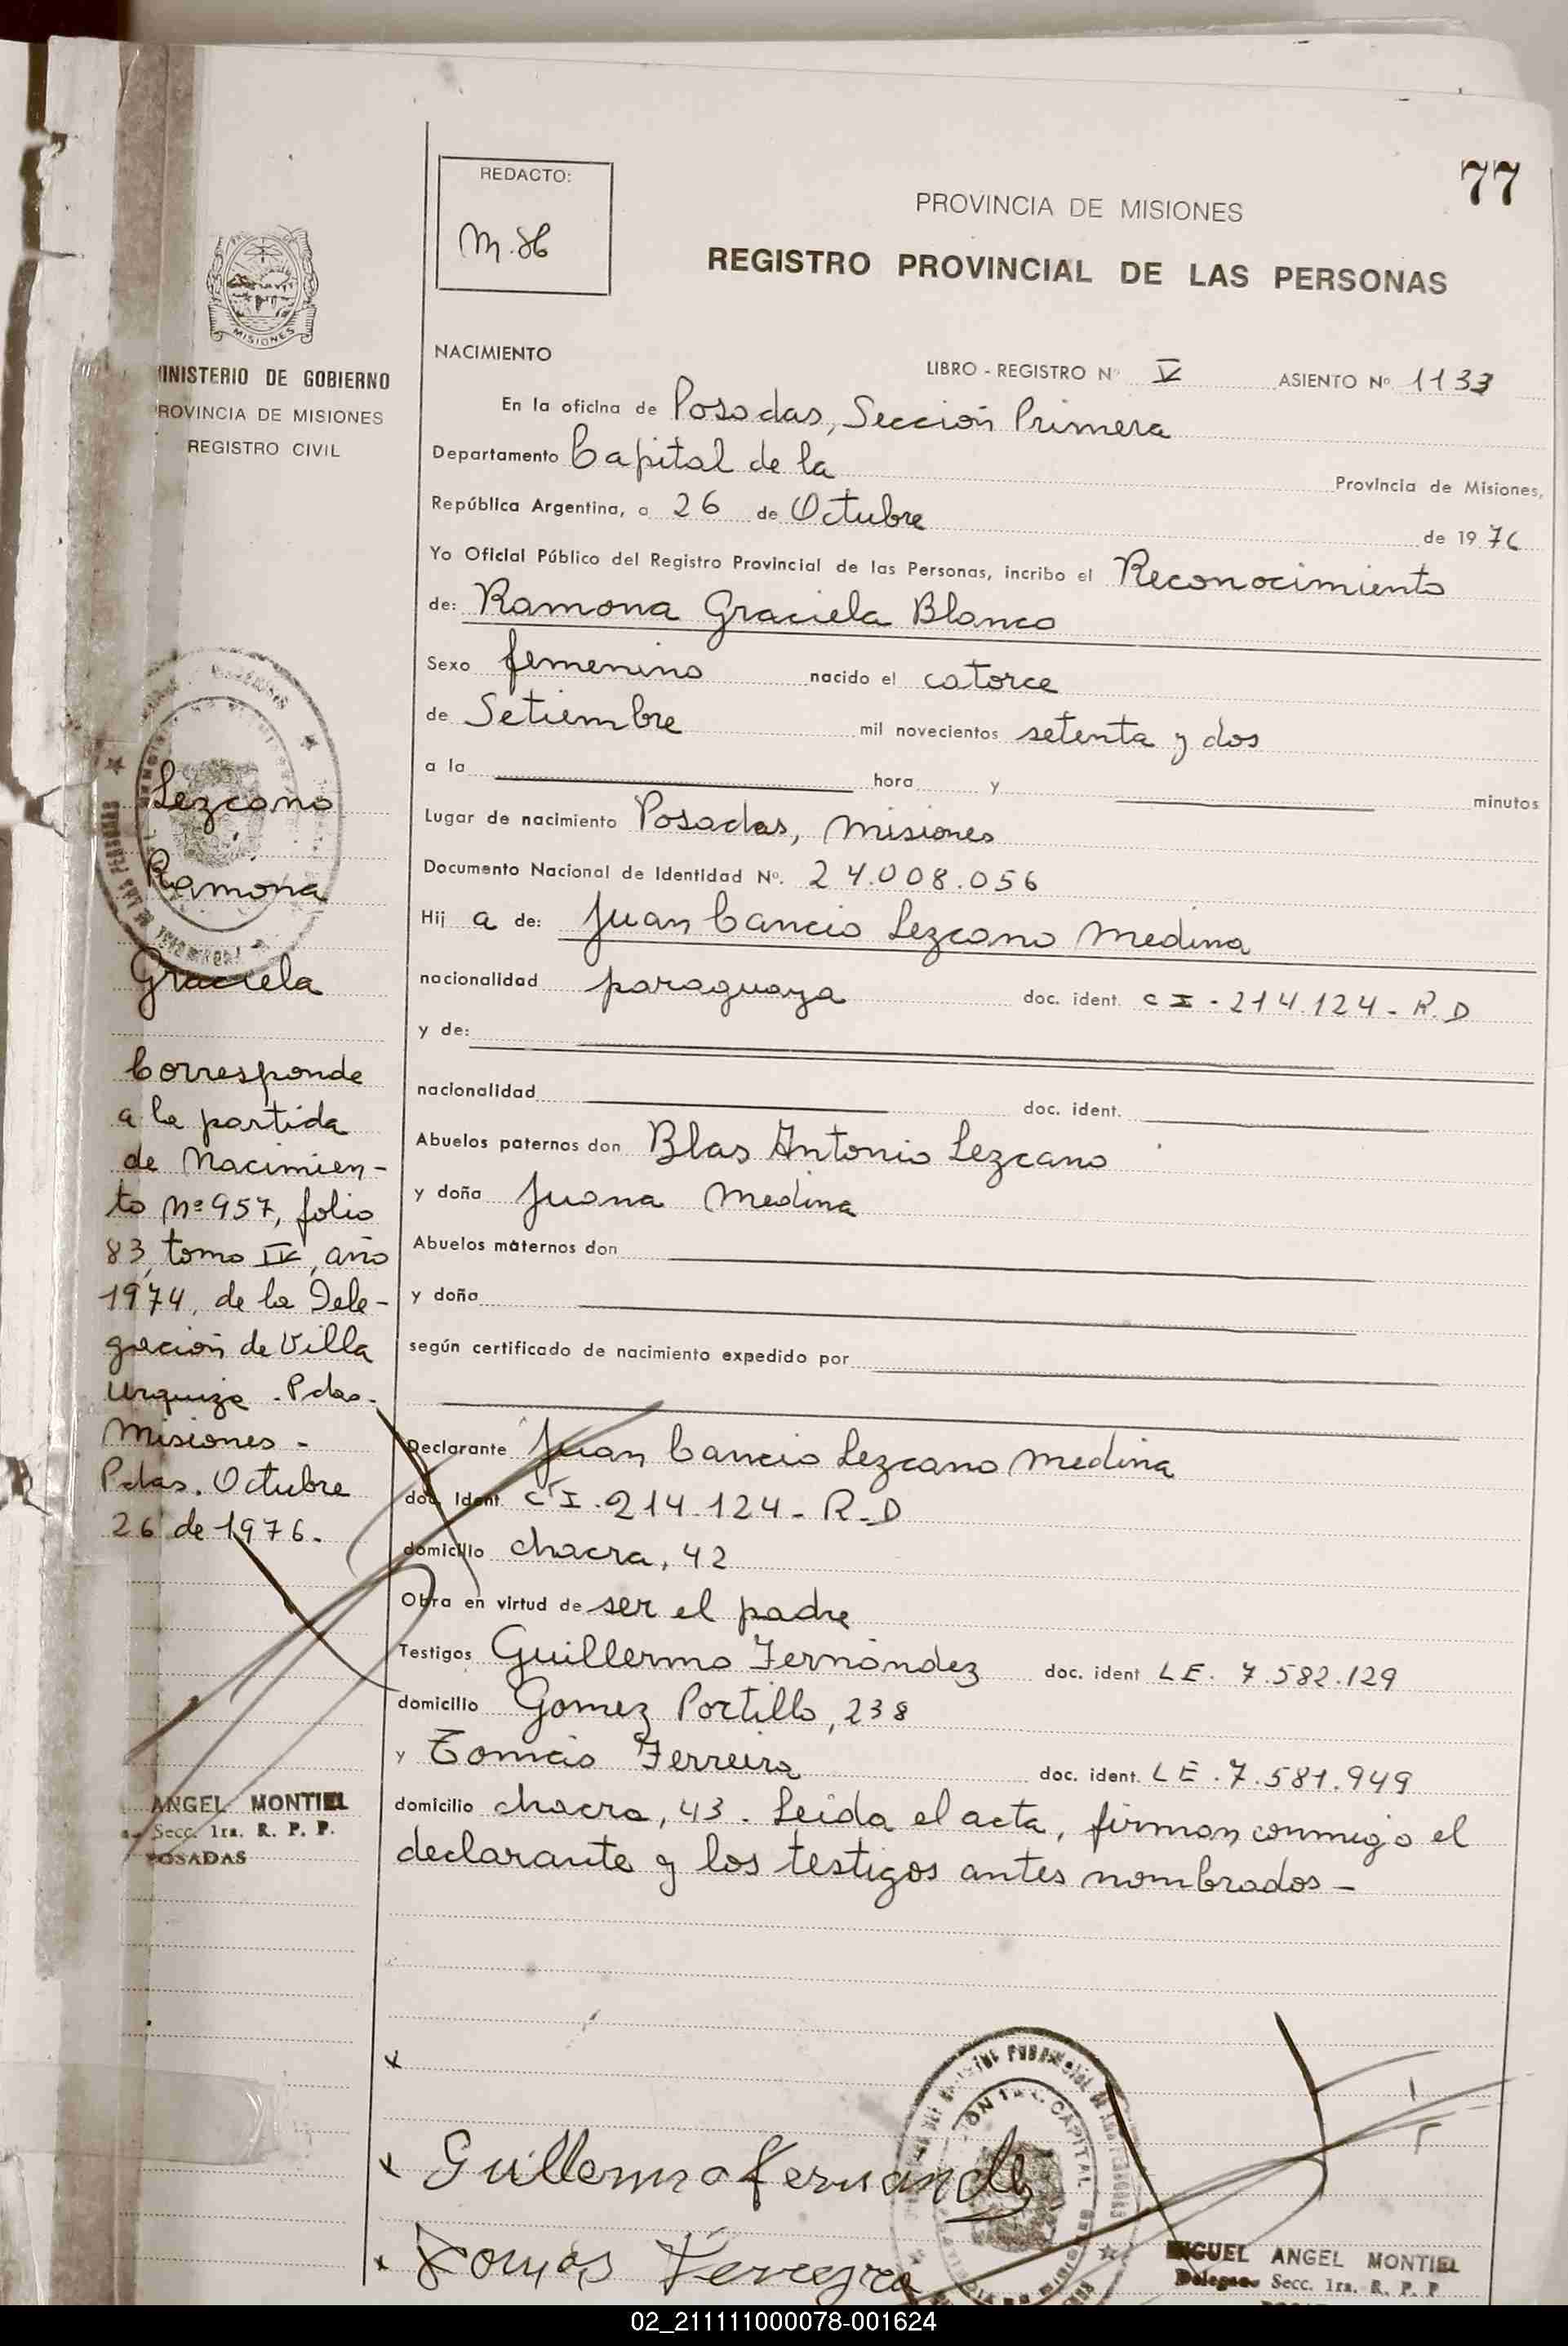 77
REDACTO:
PROVINCIA DE MISIONES
REGISTRO PROVINCIAL DE LAS PERSONAS
MISIONES
MINISTERIO DE GOBIERNO
PROVINCIA DE MISIONES
REGISTRO CIVIL
NACIMIENTO
LIBRO - REGISTRO Nº V ASIENTO Nº 1133
En la oficina de Posadas, Sección Primera
Departamento Capital de la Provincia de Misiones,
República Argentina, a 26 de Octubre de 1976
Yo Oficial Público del Registro Provincial de las Personas, incribo el Reconocimiento
de: Ramona Graciela Blanco
Sexo femenino nacido el catorce
de Setiembre mil novecientos setenta y dos
a la hora y minutos
Lugar de nacimiento Posadas, Misiones
Documento Nacional de Identidad Nº. 24.008.056
Hij a de: Juan Cancio Lezcano Medina
nacionalidad paraguaya doc. ident. C I - 214.124 - R. D
y de:
nacionalidad doc. ident.
Abuelos paternos don Blas Antonio Lezcano
y doña Juana Medina
Abuelos maternos don
y doña
según certificado de nacimiento expedido por
Declarante Juan Cancio Lezcano Medina
doc. Ident. C I - 214.124 - R - D
domicilio chacra, 42
Obra en virtud de ser el padre
Testigos Guillermo Fernández doc. ident LE. 7.582.129
domicilio Gomez Portillo, 238
y Tomás Ferreira doc. ident. LE. 7.581.949
domicilio chacra, 43. Leida el acta, firman conmigo el
declarante y los testigos antes nombrados -
Lezcano
Ramona
Graciela
Corresponde
a la partida
de Nacimien-
to nº 957, folio
83, tomo IV, año
1974, de la Dele-
gación de Villa
Urquiza - Pdas.
Misiones -
Pdas. Octubre
26 de 1976.
ANGEL MONTIEL
Secc. 1ra. R. P. P.
POSADAS
x
x Guillermo Fernandez
x Tomas Ferreyra
CAPITAL
MIGUEL ANGEL MONTIEL
Delegado Secc. 1ra. R. P. P
02_211111000078-001624